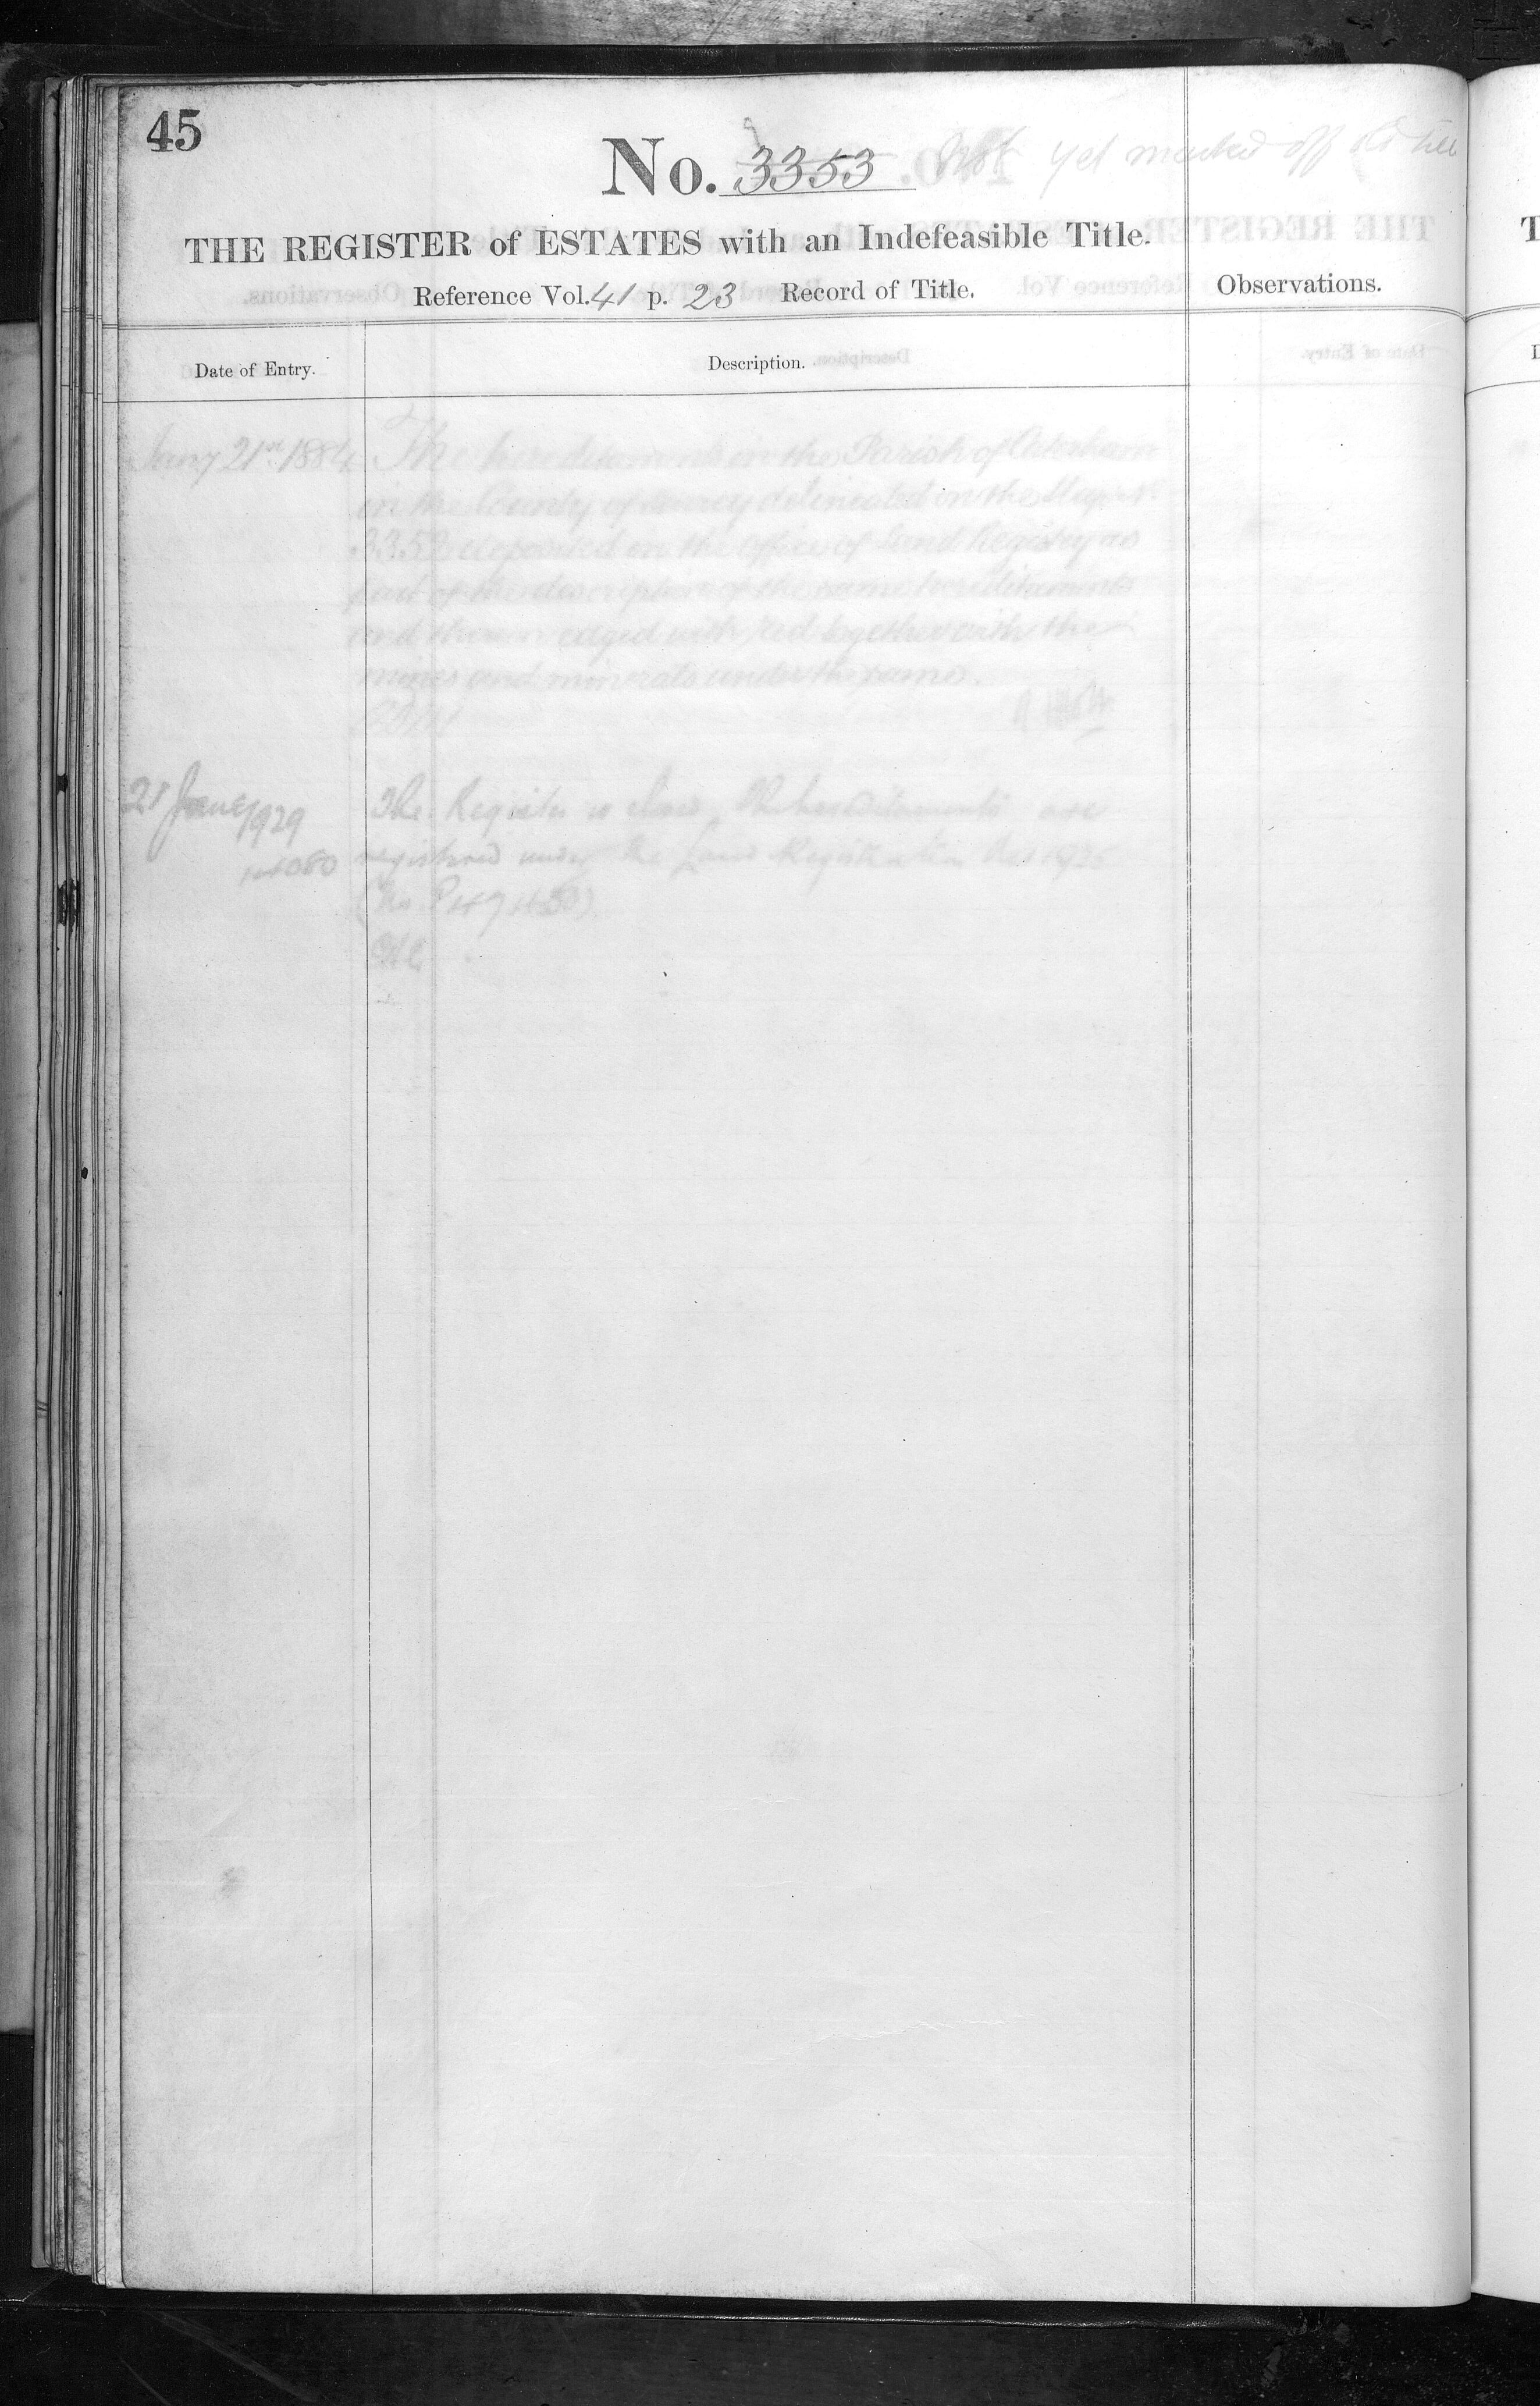 45
No. 3353 Not yet marked off old
THE REGISTER of ESTATES with an Indefeasible Title.
Reference Vol. 41 p. 23 Record of Title.
Observations.
Date of Entry.
Description.
Jany 21st 1884
The hereditaments in the Parish of Caterham
in the County of Surrey delineated on the Map No
3353 deposited in the Office of Land Registry as
part of the description of the same hereditaments
and thereon edged with red together with the
mines and minerals under the same.
21 June 1929
The Register is closed. The hereditaments are
registered under the Land Registration Act 1925